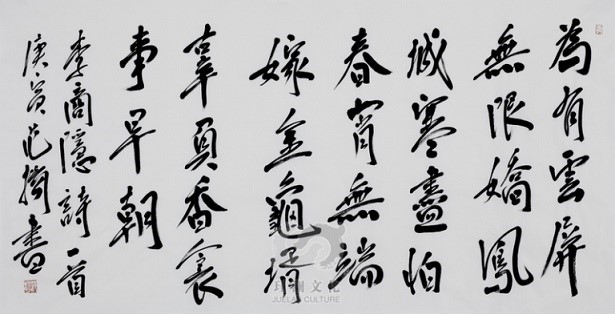 為有雲屏
無限嬌鳳
城寒盡怕
春宵無端
嫁金龜婿
辜負香衾
事早朝
李商隱詩一首
庚寅范書
文化
JUELAN CULTURE